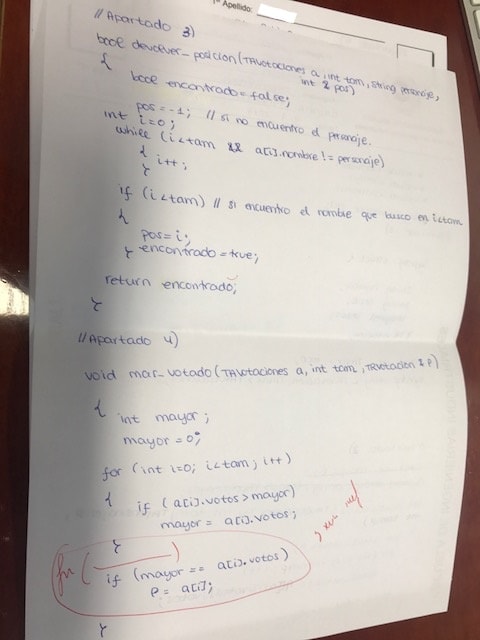 1º Apellido:
//Apartado 3)
bool devolver_posicion(TAVotaciones a, int tam, string personaje,
int & pos)
{
bool encontrado=false;
pos=-1; // si no encuentro el personaje.
int i=0;
while (i<tam && a[i].nombre != personaje)
{
i++;
}
if (i<tam) // si encuentro el nombre que busco en i<tam
{
pos=i;
encontrado=true;
}
return encontrado;
}
//Apartado 4)
void mas_votado(TAVotaciones a, int tam, TRVotacion & P)
{
int mayor;
mayor=0;
for (int i=0; i<tam; i++)
{ if (a[i].votos>mayor)
mayor = a[i].votos;
}
for ( )
if (mayor == a[i].votos)
P = a[i];
}